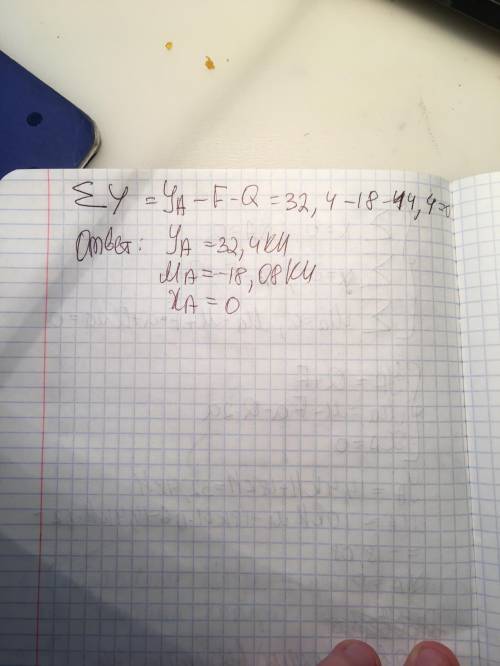 ΣY = YA − F − Q = 32,4 − 18 − 14,4 = 0
Ответ: YA = 32,4 кН
MA = −18,08 кН
XA = 0